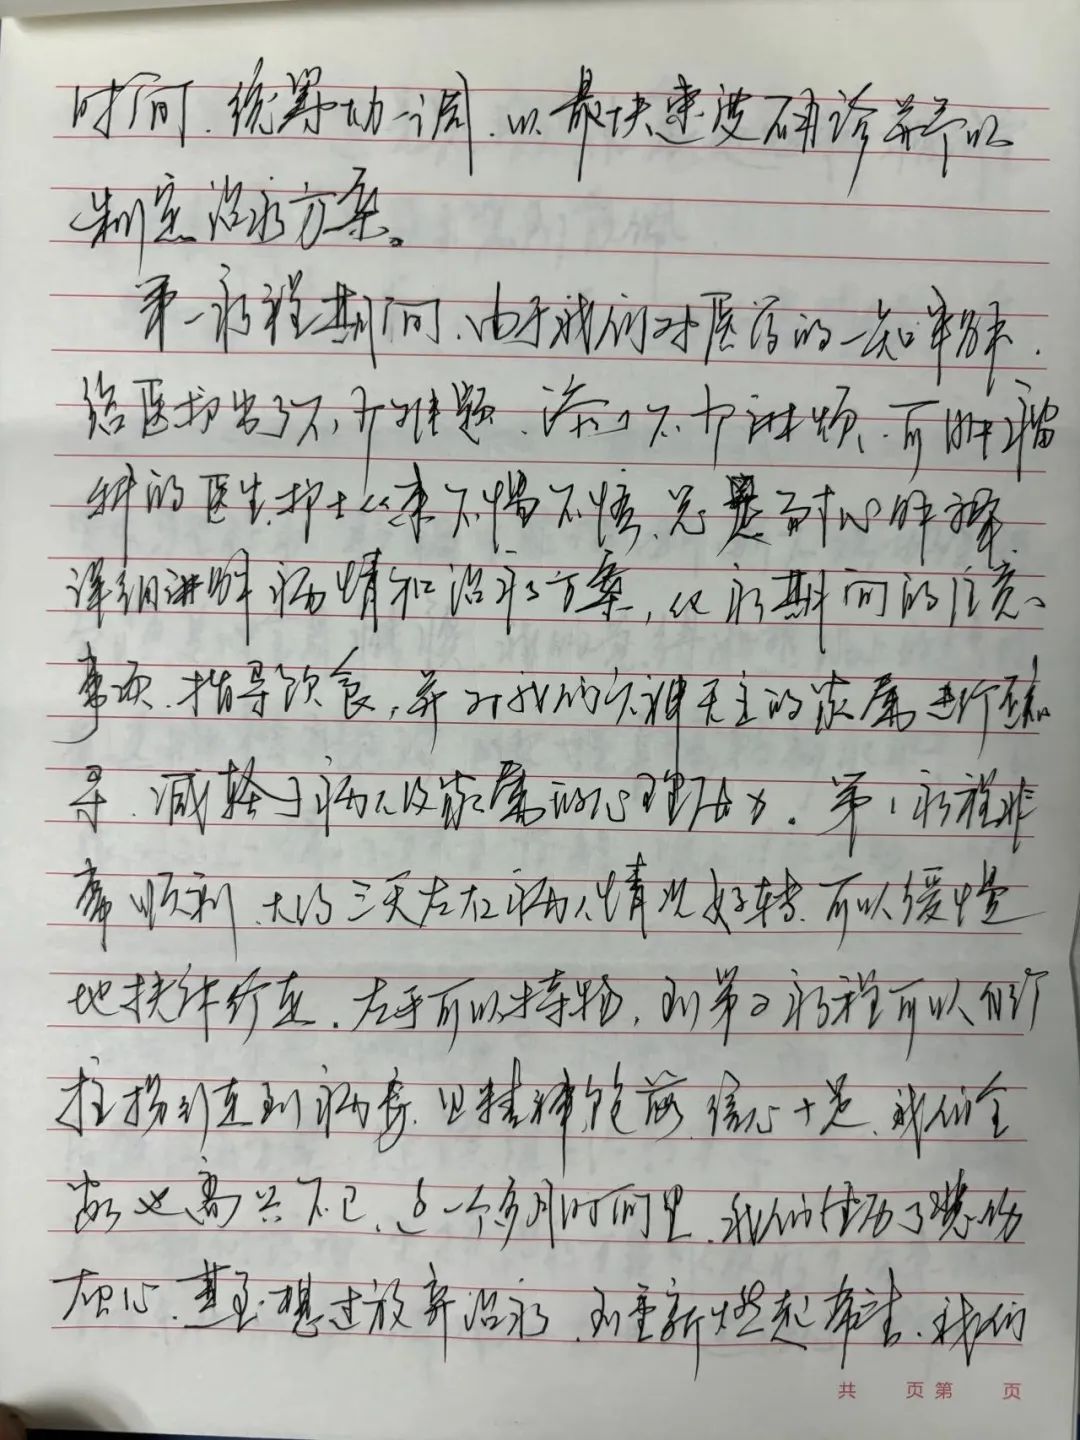 时间、统筹协调、以最快速度确诊并予以
制定治疗方案。
第一疗程期间、由于我们对医药的一知半解、
给医护出了不少难题、添了不少麻烦、可肿瘤
科的医生护士从来不惜不悋、总是耐心解释、
详细讲解病情和治疗方案，化疗期间的注意
事项、指导饮食，并对我们六神无主的家属进行
导、减轻了病人及家属的心理压力。第1疗程非
常顺利、大约三天左右病人情况好转、可以缓慢
地扶伴行走、左手可以持物，到第2疗程可以自行
拄拐行走到病房、且精神饱满、信心十足、我们全
家也高兴不已、这一个多月时间里、我们经历了悲伤
担心、甚至想过放弃治疗、到重新燃起希望、我们
共 页 第 页